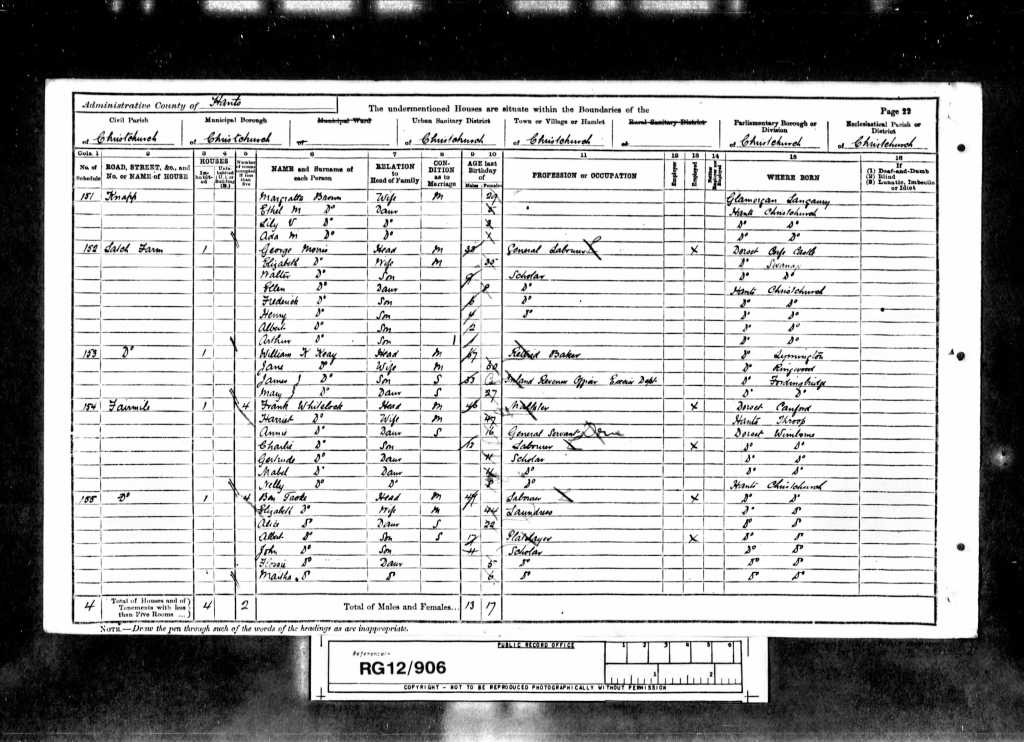 Administrative County of Hants
The undermentioned Houses are situate within the Boundaries of the
Page 22
Civil Parish
Municipal Borough
Municipal Ward
Urban Sanitary District
Town or Village or Hamlet
Rural Sanitary District
Parliamentary Borough or Division
Ecclesiastical Parish or District
of Christchurch
of Christchurch
of
of Christchurch
of Christchurch
of
of Christchurch
of Christchurch
Cols. 1 2 3 4 5 6 7 8 9 10 11 12 13 14 15 16
No. of Schedule
ROAD, STREET, &c., and No. or NAME of HOUSE
HOUSES
Inhabited
Number of rooms occupied if less than five
NAME and Surname of each Person
RELATION to Head of Family
CONDITION as to Marriage
AGE last Birthday of
Males Females
PROFESSION or OCCUPATION
Employer
Employed
WHERE BORN
If (1) Deaf-and-Dumb (2) Blind (3) Lunatic, Imbecile or Idiot
151 Knapp Brown Wife M 29 Glamorgan
Ethel M Do Daur Hants Christchurch
Lily V Do Do Do Do
Ada M Do Do Do Do
152 Latch Farm 1 George Morris Head M General Labourer X Dorset Corfe Castle
Elizabeth Do Wife M 35 Do Swanage
Walter Do Son 9 Scholar Do Do
Ellen Do Daur 8 Do Hants Christchurch
Frederick Do Son 6 Do Do Do
Henry Do Son 4 Do Do Do
Albert Do Son 2 Do Do
Arthur Do Son 1 Do Do
153 Do 1 William K Keay Head M 57 Retired Baker Do Lymington
Jane Do Wife M Do Ringwood
James Do Son S Inland Revenue Officer Excise Dept Do Fordingbridge
Mary Do Daur S 27 Do Do
154 Fairmile 1 4 Frank Whitelock Head M 46 X Dorset Canford
Harriet Do Wife M 47 Hants Throop
Annie Do Daur S 16 General Servant Dorset Wimborne
Charlie Do Son 13 Labourer X Do Do
Gertrude Do Daur 11 Scholar Do Do
Mabel Do Daur Do Do Do
Nelly Do Do 8 Do Hants Christchurch
155 Do 1 4 Ben Head M 49 Labourer X Do Do
Elizabeth Do Wife M 44 Laundress Do Do
Alice Do Daur S 22 Do Do
Albert Do Son S 17 Platelayer X Do Do
John Do Son Scholar Do Do
Florrie Do Daur 5 Do Do Do
Martha Do Do 6 Do Do Do
4 Total of Houses and of Tenements with less than Five Rooms ... 4 2 Total of Males and Females... 13 17
NOTE.—Draw the pen through such of the words of the headings as are inappropriate.
PUBLIC RECORD OFFICE
Reference:-
RG12/906
1 2 3 4 5 6
1 2
COPYRIGHT - NOT TO BE REPRODUCED PHOTOGRAPHICALLY WITHOUT PERMISSION